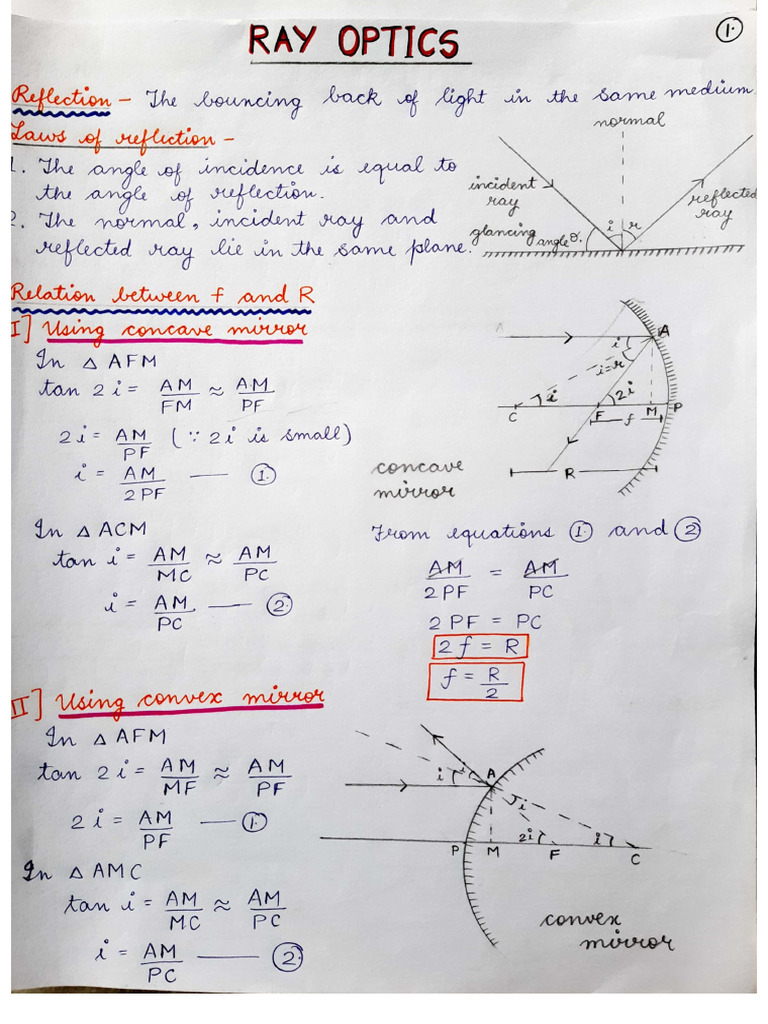 1.
RAY OPTICS
Reflection - The bouncing back of light in the same medium
Laws of reflection -
1. The angle of incidence is equal to
the angle of reflection.
2. The normal, incident ray and
reflected ray lie in the same plane.
normal
incident
ray
reflected
ray
glancing
angle θ.
i
r
Relation between f and R
I] Using concave mirror
In △ AFM
tan 2i = AM/FM ≈ AM/PF
2i = AM/PF (∵ 2i is small)
i = AM/2PF — ①
In △ ACM
tan i = AM/MC ≈ AM/PC
i = AM/PC — ②
A
i
i=r
i
2i
C
F
M
P
f
R
concave
mirror
From equations ① and ②
AM/2PF = AM/PC
2PF = PC
2f = R
f = R/2
II] Using convex mirror
In △ AFM
tan 2i = AM/MF ≈ AM/PF
2i = AM/PF — ①
In △ AMC
tan i = AM/MC ≈ AM/PC
i = AM/PC — ②
i
i
A
i
2i
i
P
M
F
C
convex
mirror